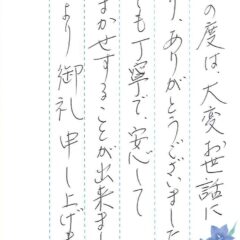 の度は、大変お世話に
り、ありがとうございました
も丁寧で、安心して
まかせすることが出来まし
より御礼申し上げま